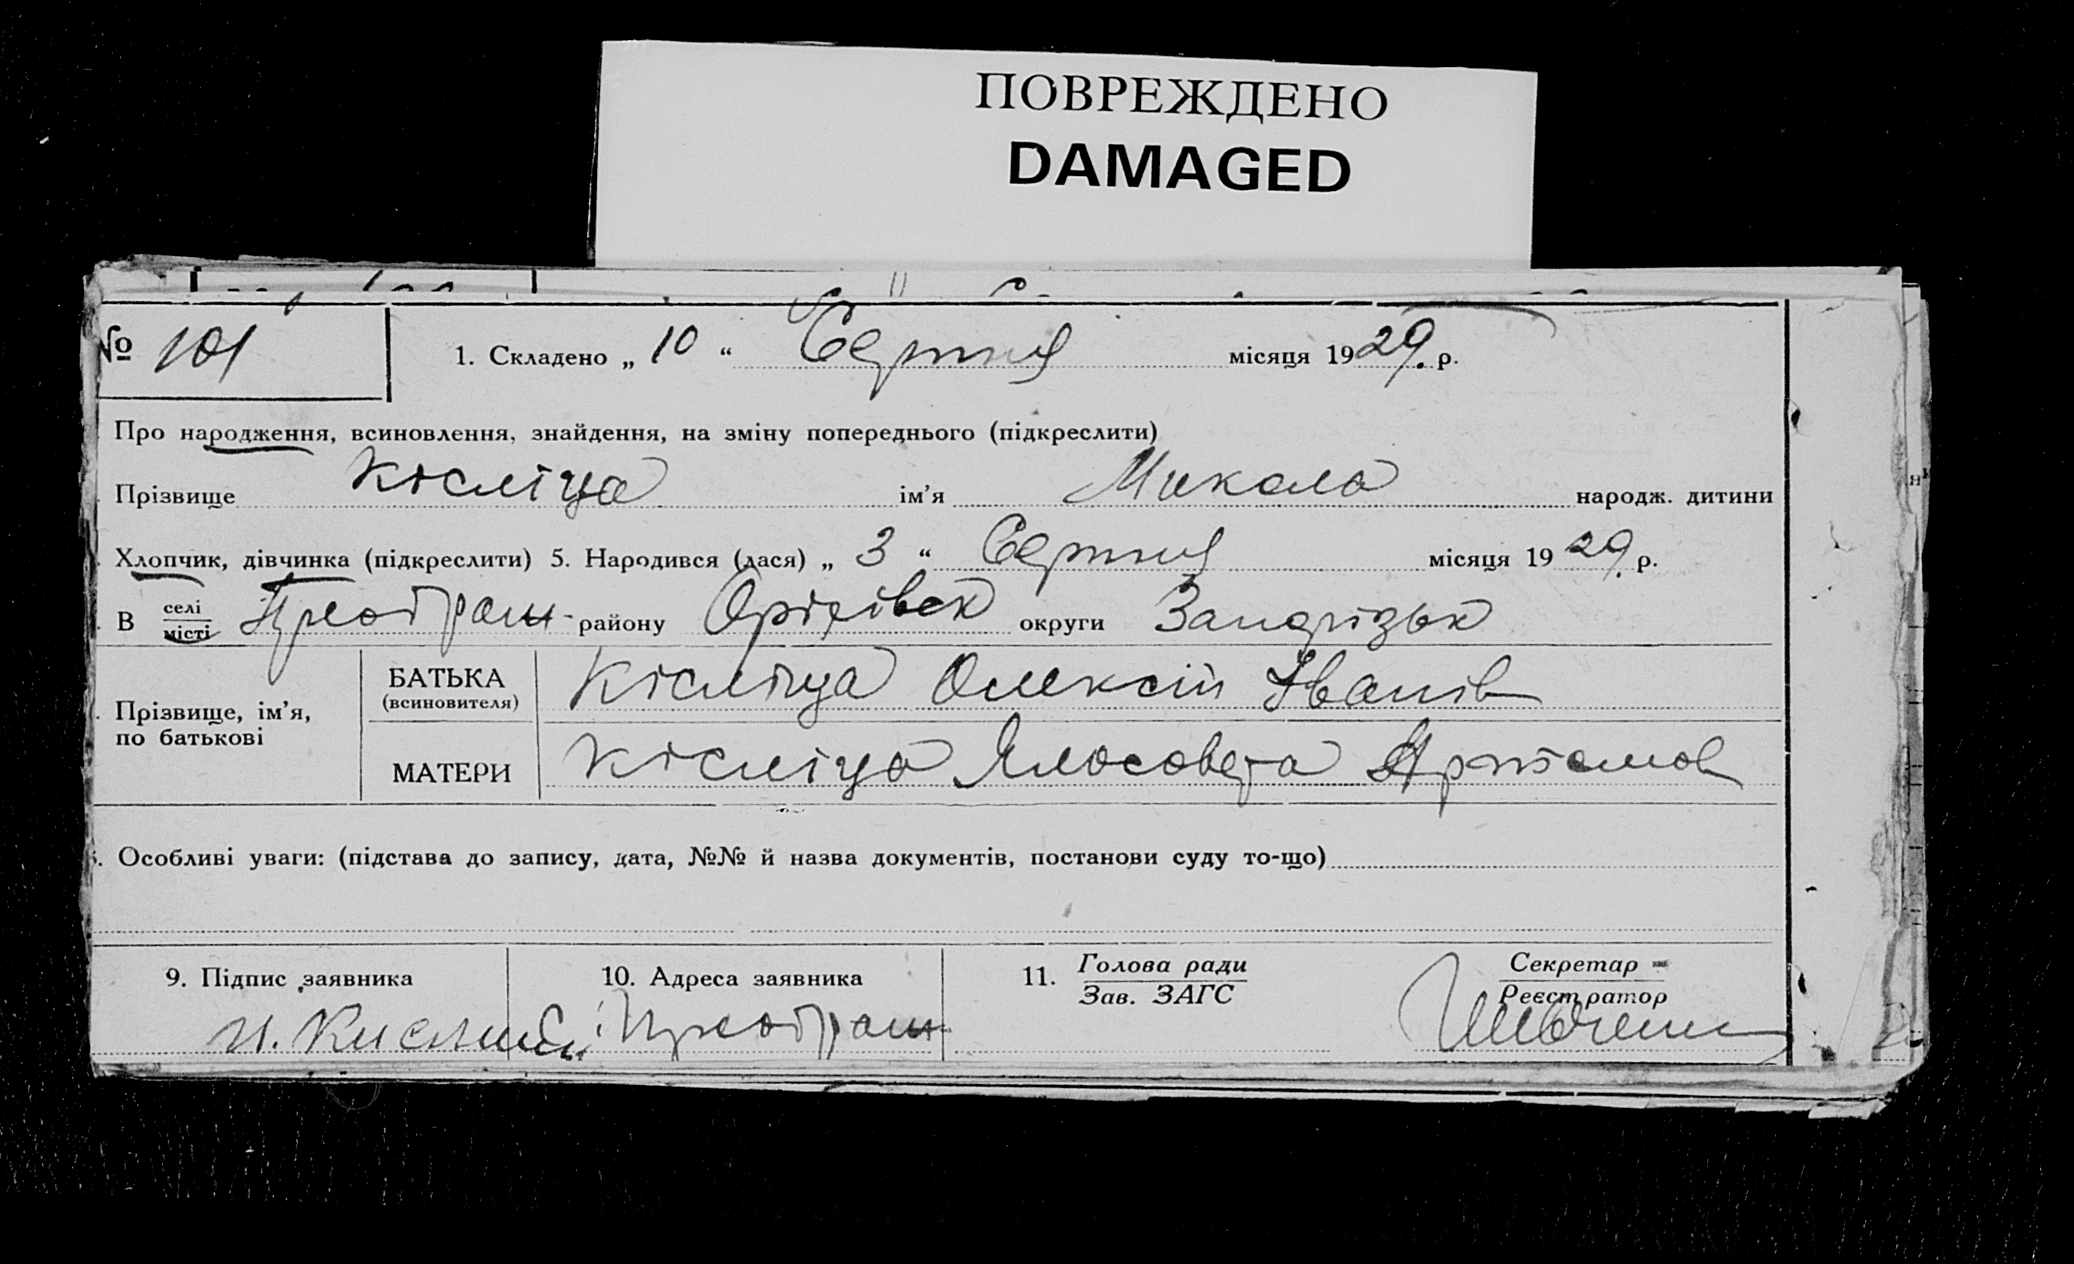 ПОВРЕЖДЕНО
DAMAGED
№ 101
1. Складено „ 10 “ Серпня місяця 1929. р.
Про народження, всиновлення, знайдення, на зміну попереднього (підкреслити)
Прізвище Кісліца ім’я Микола народж. дитини
Хлопчик, дівчинка (підкреслити) 5. Народився (лася) „ 3 “ Серпня місяця 1929. р.
В селі
місті Преображ- району Оріхівск округи Запорізьк
Прізвище, ім’я, по батькові
БАТЬКА (всиновителя) Кісліца Олексій Іванів
МАТЕРИ Кісліца Ялосовета Артемов
. Особливі уваги: (підстава до запису, дата, №№ й назва документів, постанови суду то-що)
9. Підпис заявника
10. Адреса заявника Преображ
11. Голова ради
Зав. ЗАГС
Секретар
Реєстратор